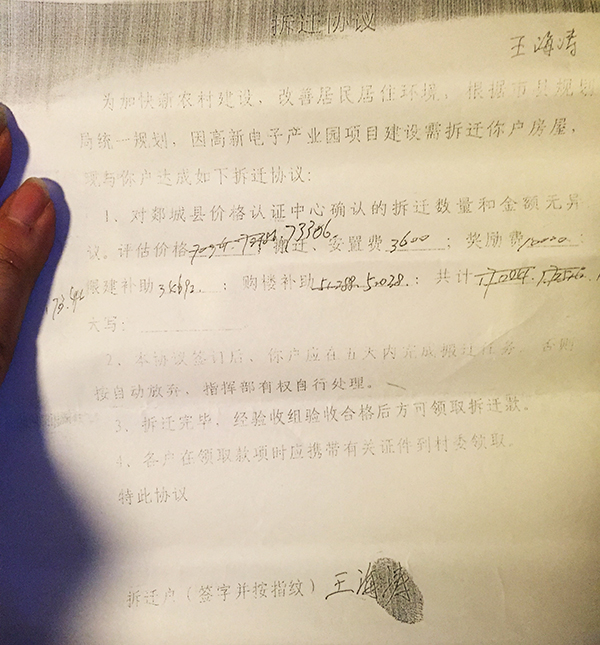 拆迁协议
王海涛
为加快新农村建设，改善居民居住环境，根据市县规划
局统一规划，因高新电子产业园项目建设需拆迁你户房屋，
现与你户达成如下拆迁协议：
1、对郯城县价格认证中心确认的拆迁数量和金额无异
议。评估价格 73386 搬迁、安置费3600；奖励费10000；
限建补助；购楼补助；共计
大写：
2、本协议签订后，你户应在五天内完成搬迁任务，否则
按自动放弃，指挥部有权自行处理。
3、拆迁完毕，经验收组验收合格后方可领取拆迁款。
4、各户在领取款项时应携带有关证件到村委领取。
特此协议
拆迁户（签字并按指纹）王海涛